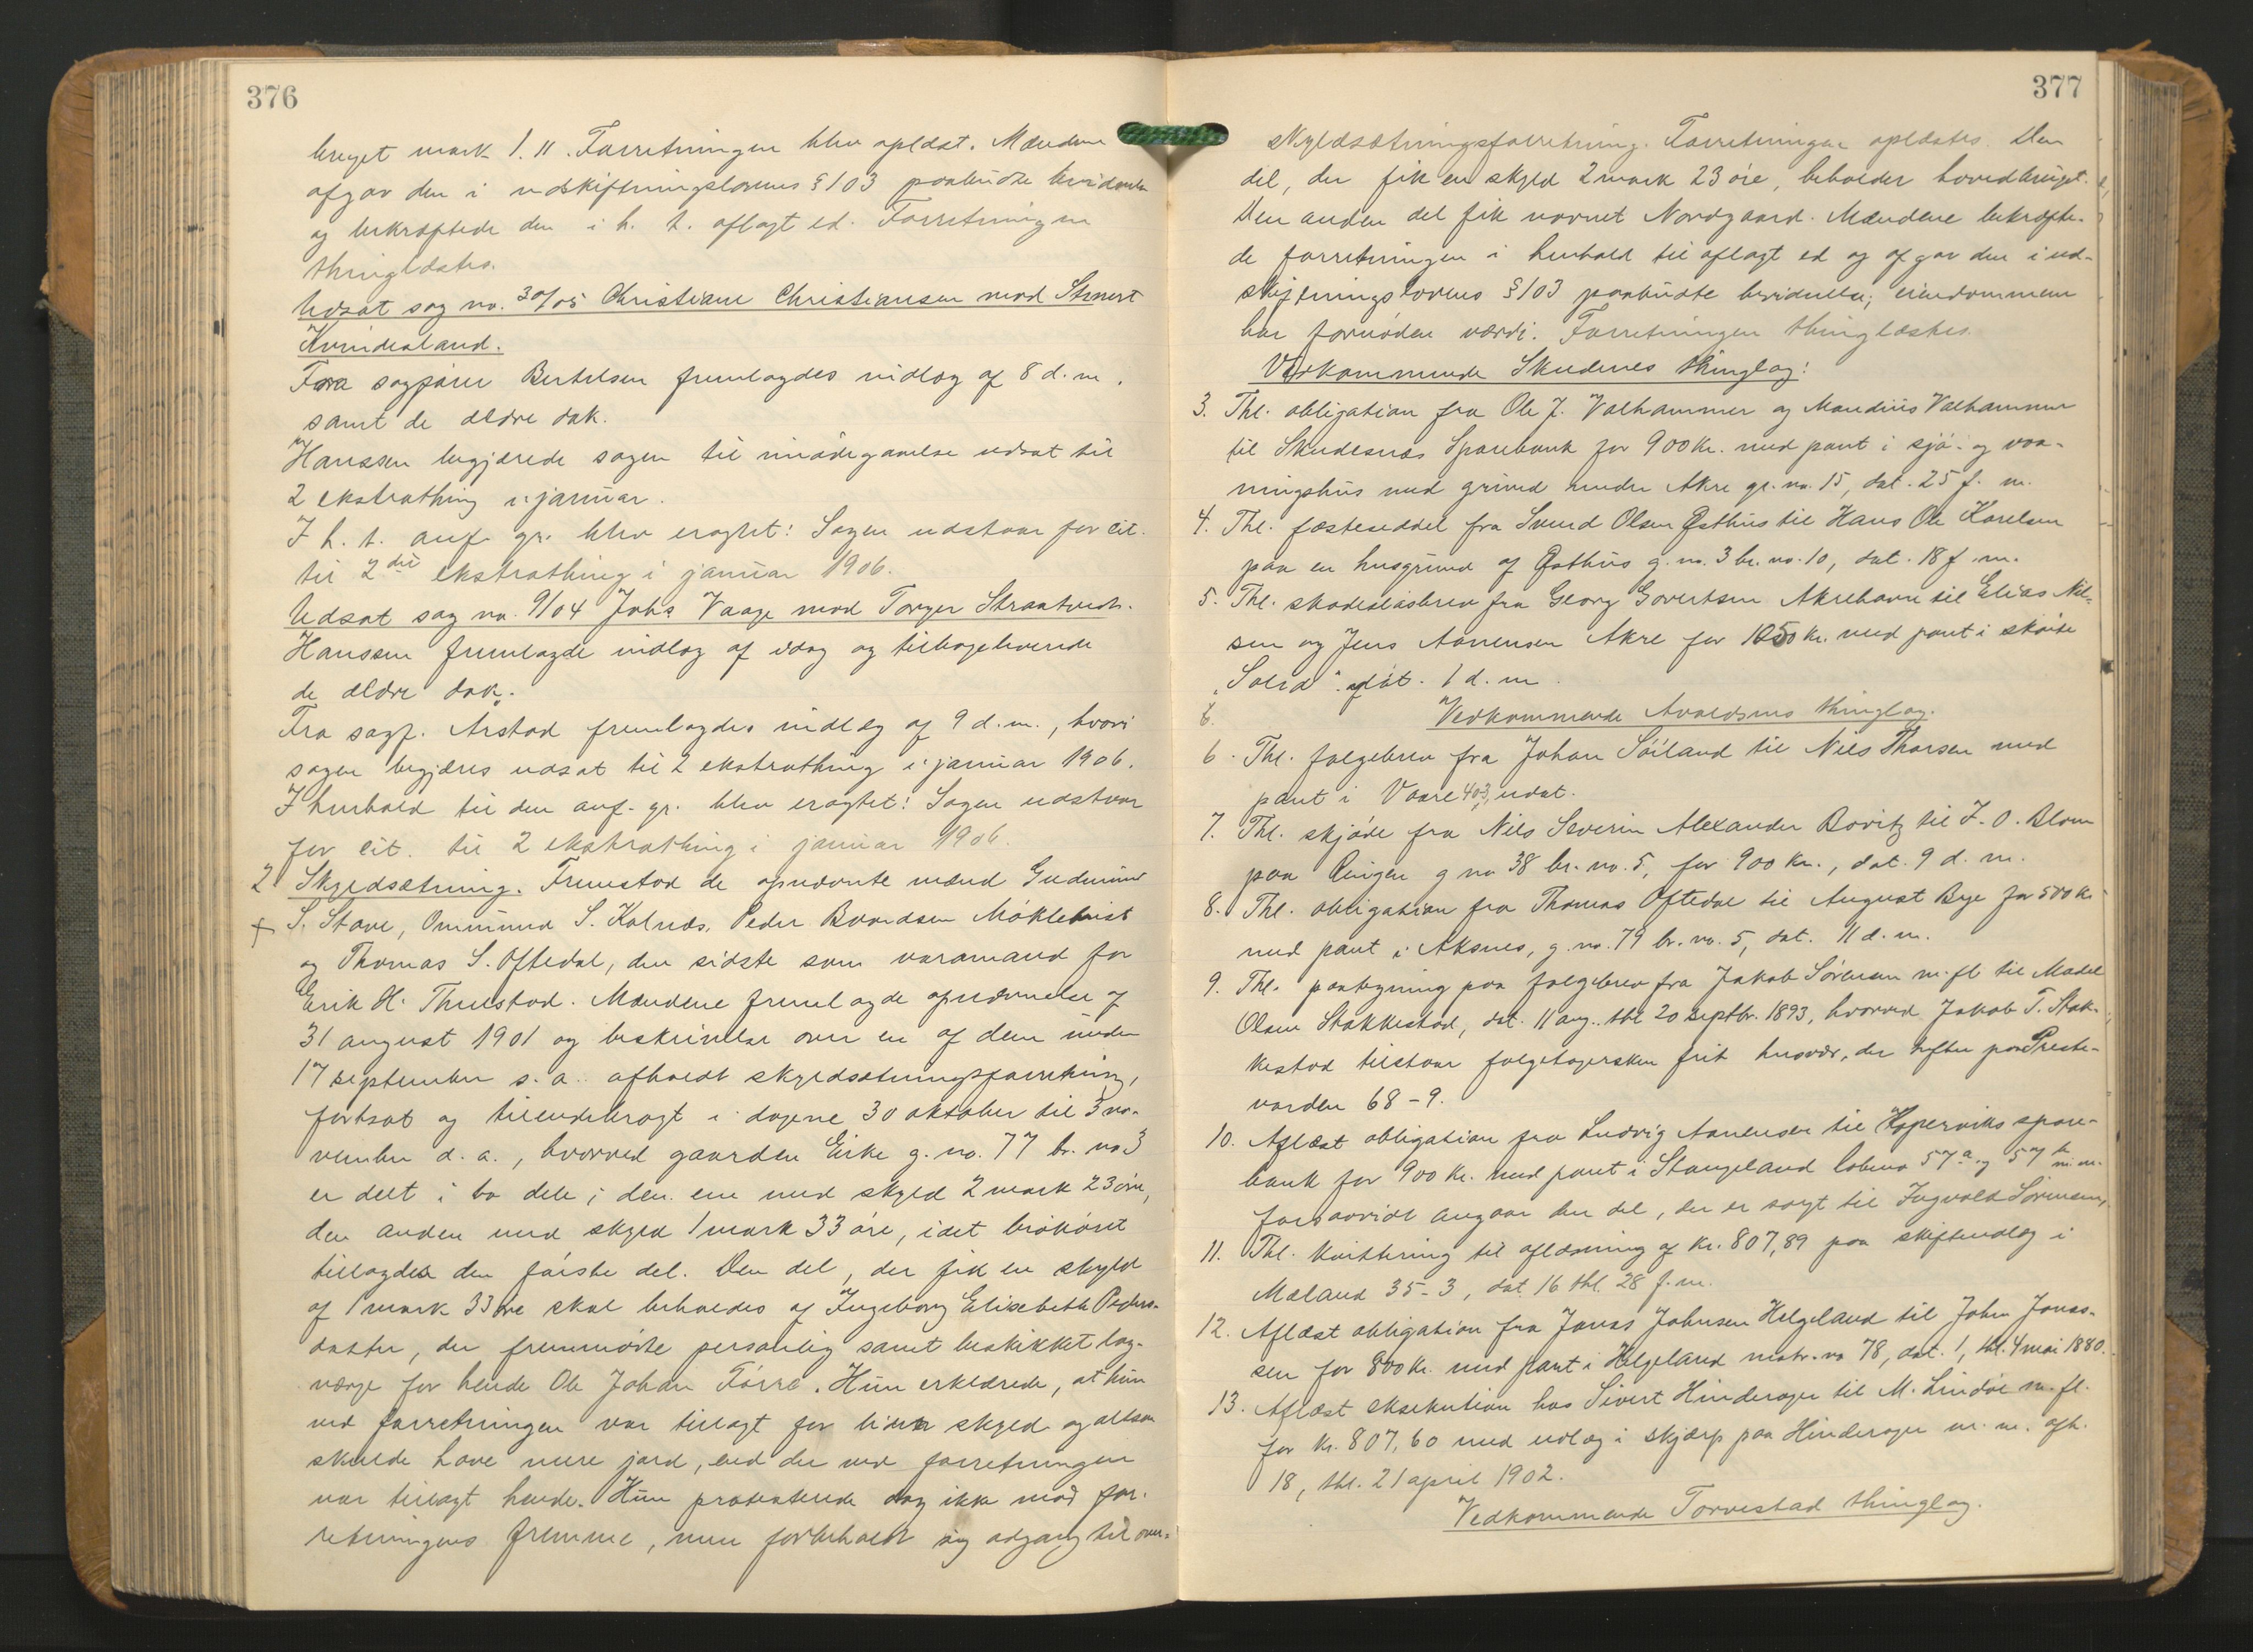 376
bruget mark 1.11. Forretningen blev oplæst. Mændene
afgav den i udskiftningslovens § 103 paabudte bevidnelse
og bekræftede den i h. t. aflagt ed. Forretningen
thinglæstes.
Udsat sag no. 30/05 Christiane Christiansen mod Sivert
Kvindesland.
Fra sagfører Bertelsen fremlagdes indlæg af 8 d. m.
samt de ældre dok.
Hanssen begjærede sagen til imødegaaelse udsat til
2 ekstrathing i januar.
I h. t. anf. gr. blev eragtet: Sagen udstaar for cit.
til 2det ekstrathing i januar 1906.
Udsat sag no. 9/04 Johs Vaage mod Torger Straatveit.
Hanssen fremlagde indlæg af idag og tilbageleverede
de ældre dok.
Fra sagf. Arstad fremlagdes indlæg af 9 d. m., hvori
sagen begjæres udsat til 2 ekstrathing i januar 1906.
I henhold til den anf. gr. blev eragtet: Sagen udstaar
for cit. til 2 ekstrathing i januar 1906.
2 Skyldsætning. Fremstod de opnævnte mænd Gudmund
S. Stave, Ommund S. Kolnæs, Peder Baardsen Møklebust
og Thomas S. Oftedal, den sidste som varamand for
Erik H. Thuestad. Mændene fremlagde opnævnelse af
31 august 1901 og beskrivelse over en af dem under
17 september s. a. afholdt skyldsætningsforretning,
fortsat og tilendebragt i dagene 30 oktober til 3 no-
vember d. a., hvorved gaarden Eike g. no. 77 br. no 3
er delt i to dele; den ene med skyld 2 mark 23 øre,
den anden med skyld 1 mark 33 øre, idet brøkøret
tillagdes den første del. Den del, der fik en skyld
af 1 mark 33 øre skal beholdes af Ingeborg Elisabeth Peders-
datter, der fremmødte personlig samt beskikket lag-
værge for hende Ole Johan Førre. Hun erklærede, at hun
ved forretningen var tillagt for liden skyld og altsaa
skulde have mere jord, end der ved forretningen
var tillagt hende. Hun protesterede dog ikke mod for-
retningens fremme, men forbeholdt sig adgang til over-
377
skyldsætningsforretning. Forretningen oplæstes. Den
del, der fik en skyld 2 mark 23 øre, beholder hovedbruget.
Den anden del fik navnet Nordgaard. Mændene bekræfte-
de forretningen i henhold til aflagt ed og afgav den i ud-
skiftningslovens § 103 paabudte bevidnelse; eiendommene
har fornøden værdi. Forretningen thinglæstes.
Vedkommende Skudenes thinglag:
3. Thl. obligation fra Ole J. Valhammer og Maudius Valhammer
til Skudesnæs Sparebank for 900 kr. med pant i sjø- og vaa-
ningshus med grund under Akre gr. no. 15, dat. 25 f. m.
4. Thl. fæsteseddel fra Svend Olsen Østhus til Hans Ole Karelsen
paa en husgrund af Østhus g. no. 3 br. no. 10, dat. 18 f. m.
5. Thl. skadesløsbrev fra Georg Govertsen Akrehavn til Elias Nil-
sen og Jens Aanensen Akre for 1050 kr. med pant i skøite
"Solid". dat. 1 d. m.
Vedkommende Avaldsnes thinglag.
6. Thl. følgebrev fra Johan Søiland til Nils Thorsen med
pant i Vaare 40-3, udat.
7. Thl. skjøde fra Nils Severin Alexander Bovitz til J. O. Blom
paa Eingen g no 38 br. no. 5, for 900 kr., dat. 9 d. m.
8. Thl. obligation fra Thomas Oftedal til August Bye for 500 kr
med pant i Aksnes, g. no. 79 br. no. 5, dat. 11 d. m.
9. Thl. paategning paa følgebrev fra Jakob Sørensen m. fl. til Madel
Olsen Stakkestad, dat. 11 aug. thl 20 septbr. 1893, hvorved Jakob T. Stak-
kestad tilstaar følgetagersken frit husvær, der hefter paa Preste-
varden 68-9.
10. Aflæst obligation fra Ludvig Aanensen til Kopervik spare-
bank for 900 kr. med pant i Stangeland løbeno 57a og 57b m. m.
forsaavidt angaar den del, der er solgt til Ingvald Sørensen,
11. Thl. kvittering til aflæsning af kr. 807,89 paa skifteudlæg i
Mæland 35-3, dat. 16 thl. 28 f. m.
12. Aflæst obligation fra Jonas Johnsen Helgeland til John Jonas-
sen for 800 kr. med pant i Helgeland matr. no 78, dat. 1, thl. 4 mai 1880.
13. Aflæst eksekution hos Sivert Hinderager til M. Lindøe m. fl.
for kr. 807,60 med udlæg i skjærp paa Hinderager m. m. afh.
18, thl. 21 april 1902.
Vedkommende Torvestad thinglag.